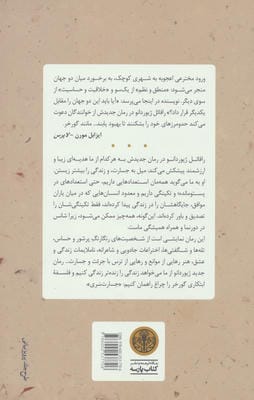 ورود مخترعی اعجوبه به شهری کوچک، به برخورد میان دو جهان
منجر می‌شود: «منطق و نظم» از یک‌سو و «خلاقیت و حساسیت» از
سوی دیگر. نویسنده در اینجا می‌پرسد: «آیا باید این دو جهان را مقابل
یکدیگر قرار داد؟» رافائل ژیوردانو در رمان جدیدش از خوانندگان دعوت
می‌کند حدومرزهای خود را بشکنند تا بهبود یابند... مانند گورخر.
ایزابل مورن – لاپرس
رافائل ژیوردانو در رمان جدیدش به هر کدام از ما هدیه‌ای زیبا و
ارزشمند پیشکش می‌کند: میل به جسارت، و زندگی را بیشتر زیستن.
او به ما می‌گوید همه‌مان استعدادهایی داریم، حتی استعدادهای در
پستو‌مانده؛ و تکینگی داریم و معدود انسان‌هایی که در میان مردان
موافق، جایگاهشان را در زندگی پیدا کرده‌اند، فقط تکینگی‌شان را
تصدیق و باور کرده‌اند. این‌گونه، همه‌چیز ممکن می‌شود، زیرا شانس
در دورنما و همراه همیشگی ماست.
این رمان نمایشی است از شخصیت‌های رنگارنگ، پرشور و حساس،
تله‌ها و گشفتنی‌ها، اختراعات جادویی و شاعرانه، ناملایمات زندگی و
عشق، هنر رهایی از موانع و رهایی از ترس با جرئت و جسارت. رمان
جدید ژیوردانو از ما می‌خواهد زندگی را زنده‌تر زندگی کنیم و فلسفهٔ
ابتکاری گورخر را چراغ راهمان کنیم: «جسارت‌مَری».
کتاب پارسه
طرح جلد: پرویز بیانی